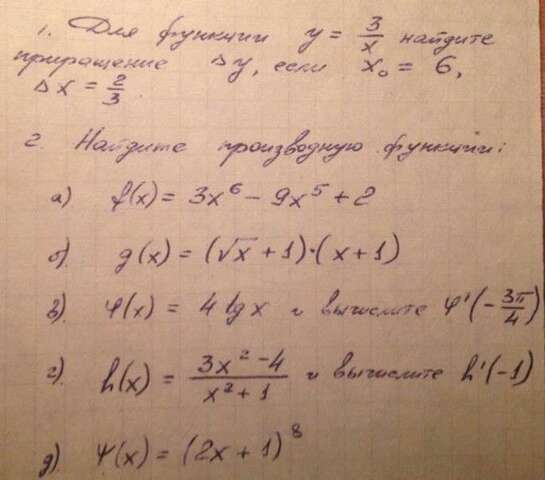 1. Для функции y = 3/x найдите
приращение Δy, если x₀ = 6,
Δx = 2/3.
2. Найдите производную функции:
а) f(x) = 3x⁶ - 9x⁵ + 2
б). g(x) = (√x + 1)·(x + 1)
в). φ(x) = 4 tg x и вычислите φ'(-3π/4)
г). h(x) = (3x² - 4)/(x² + 1) и вычислите h'(-1)
д). Ψ(x) = (2x + 1)⁸